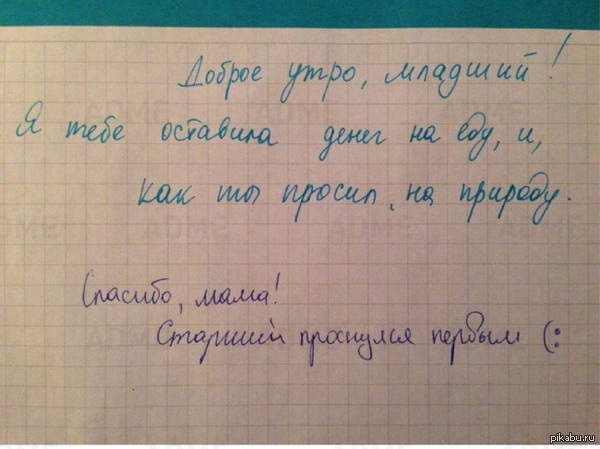 Доброе утро, младший!
Я тебе оставила денег на еду, и,
как ты просил, на природу.
Спасибо, мама!
Старший проснулся первым (:
pikabu.ru